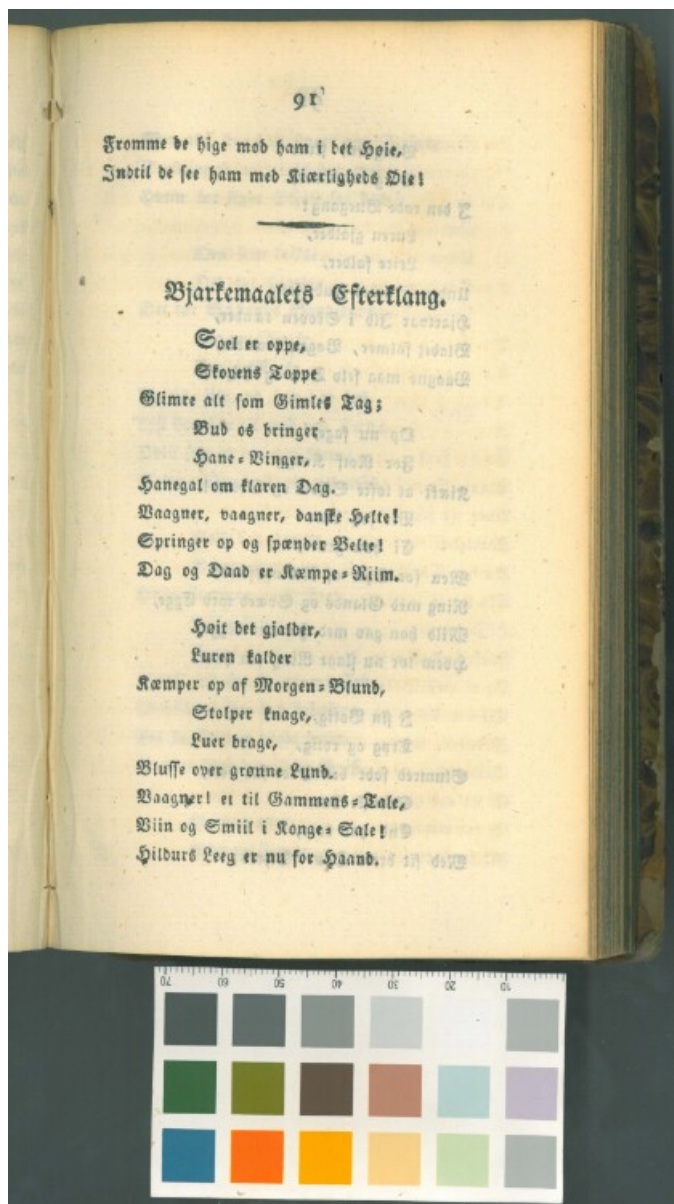 91
Fromme de hige mod ham i det Høie,
Indtil de see ham med Kiærligheds Øie!
Bjarkemaalets Efterklang.
Soel er oppe,
Skovens Toppe
Glimre alt som Gimles Tag;
Bud os bringer
Hane-Vinger,
Hanegal om klaren Dag.
Vaagner, vaagner, danske Helte!
Springer op og spænder Belte!
Dag og Daad er Kæmpe-Riim.
Høit det gjalder,
Luren kalder
Kæmper op af Morgen-Blund,
Stolper knage,
Luer brage,
Blusse over grønne Lund.
Vaagner! ei til Gammens-Tale,
Viin og Smiil i Konge-Sale!
Hildurs Leeg er nu for Haand.
70 60 50 40 30 20 10